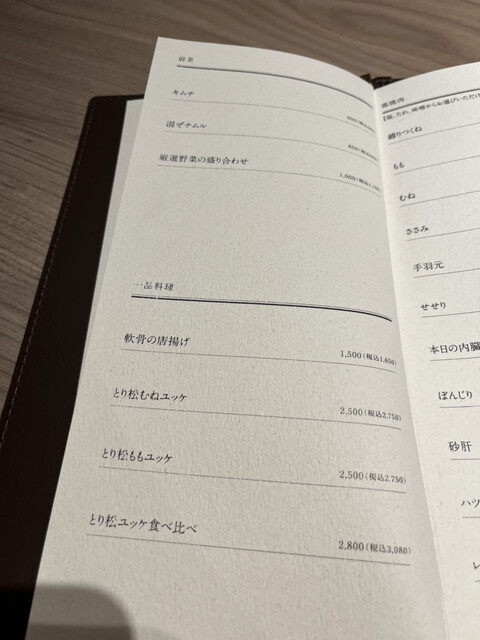 前菜
キムチ
混ぜナムル
厳選野菜の盛り合わせ
1,000(税込1,100)
一品料理
軟骨の唐揚げ
1,500(税込1,650)
とり松むねユッケ
2,500(税込2,750)
とり松ももユッケ
2,500(税込2,750)
とり松ユッケ食べ比べ
2,800(税込3,080)
鶏焼肉
【塩、たれ、味噌からお選びいただけ
鶏つくね
もも
むね
ささみ
手羽元
せせり
本日の内臓
ぼんじり
砂肝
ハツ
レ